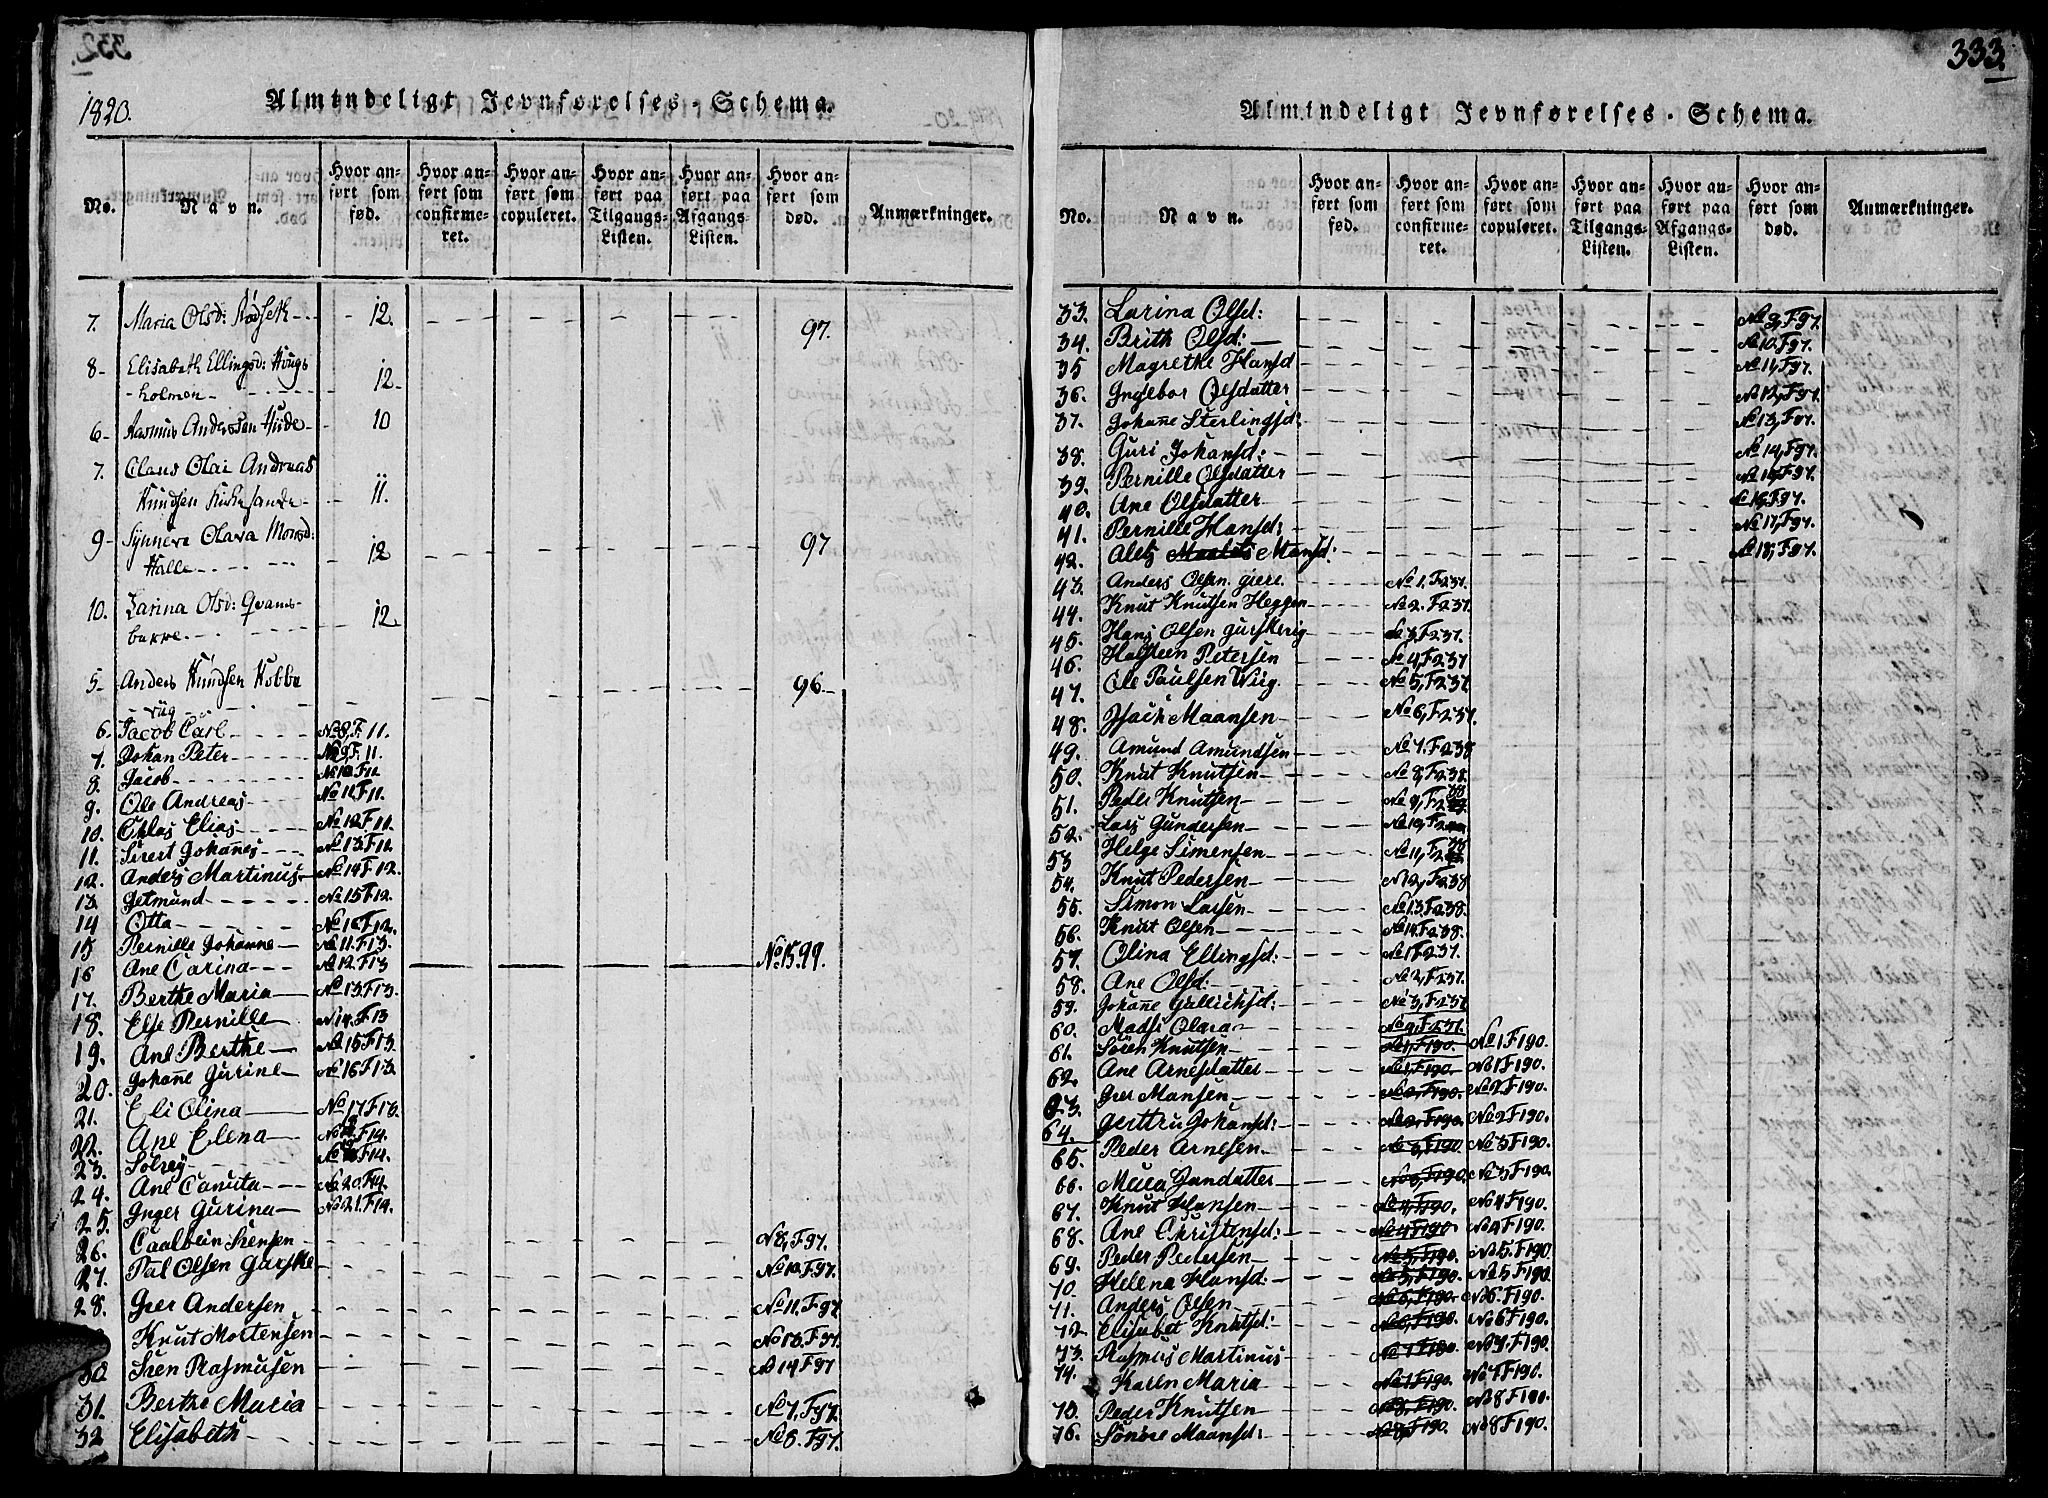 332.
1820. Almindeligt Jevnførelses-Schema.
No. Navn. Hvor anført som fød. Hvor anført som confirmeret. Hvor anført som copuleret. Hvor anført paa Tilgangs-Listen. Hvor anført paa Afgangs-Listen. Hvor anført som død. Anmærkninger.
7. Maria Olsd: Rødseth 12. 97.
8 Elisabeth Ellingsd: Hougs
holmen 12
6 Rasmus Anderssen 10
7. Claus Olai Andreas
Knudsen 11.
9 Synneva Olava Monsd:
Halle 12 97
10. Larina Olsd: Qvams-
bakke 12.
5 Anders Knudsen Kobbe
vüg 96
6. Jacob Carl No 8, F. 11.
7. Johan Peter No 9 F. 11.
8. Jacob No 10. F 11
9. Ole Andreas No 11. F 11.
10. Elias No 12 F 11.
11. Sivert Johanes No 13. F 12
12. Anders Martinus No 14 F 12.
13. Getmund No 15 F 12.
14 Otta No 16 F 12.
15 Pernille Johanne No 11. F 13.
16 Ane Carina No 12. F 13 No 15. 99.
17. Berthe Maria No 13. F 13.
18. Else Pernille N 14. F 13
19. Ane Berthe No 15 F 13.
20. Johane Gurine No 16 F 13.
21. Eli Olina No 17 F 13.
22. Ane Elena F 14.
23. Solvey F 14.
24. Ane Canuta No 20. F 14.
25. Inger Gurina No 21. F 14.
26. N 8, F 97.
27. Pal Olsen Gurske No 10. F 97.
28. Gier Andersen No 11. F 97
Knut Mortensen No 13. F 97.
30 Iver Rasmusen No 14 F 97
31. Berthe Maria No 7, F 97.
32 Elisabeth No 8. F 97.
333.
Almindeligt Jevnførelses-Schema.
No. Navn. Hvor anført som fød. Hvor anført som confirmeret. Hvor anført som copuleret. Hvor anført paa Tilgangs-Listen. Hvor anført paa Afgangs-Listen. Hvor anført som død. Anmærkninger.
33. Larina Olsd: No 9, F 97.
34. Brith Olsd: No 10. F 97.
35 Magrethe Hansd No 11, F 97.
36. Ingebor Olsdatter No 12, F 97.
37. Johane Sterlingsd: No 13, F 97.
38. Guri Johansd: No 14, F 97.
39. Pernille Olsdatter No 15, F 97.
40. Ane Olsdatter No 16, F 97.
41. Pernille Hansd: No 17, F 97.
42. Alets Mansd: No 18, F 97.
43. Anders Olsen giere No 1. F 237.
44. Knut Knutsen Heggen No 2. F 237.
45. Hans Olsen No 3. F 237.
46. Halsteen Petersen No 4, F 237
47. Ole Paulsen Wiig No 5, F 237.
48. Isach Maansen No 6, F 237.
49. Amund Amundsen No 7. F 238
50. Knut Knutsen No 8, F 238.
51. Peder Knutsen No 9, F 238
52. Lars Gundersen No 10, F 2
53 Helge Simensen No 11, F 238
54. Knut Pedersen N 12, F 238
55. Simon Larsen No 13. F 238.
56. Knut Olsen No 14. F 238.
57. Olina Ellingsd: No 1 F 237.
58. Ane Olsd: No 2, F 237.
59. Johane No 3, F 237
60. Madsi Olava No 4, F 237.
61. Søren Knutsen No 1, F 190. No 1 F 190.
62. Ane Arnesdatter No 1, F 190. No 1 F 190.
63. Gier Mansen No 2, F 190. No 2 F 190.
64. Gerttru Johansd: No 2, F 190. No 2 F 190.
65. Peder Arnesen No 3, F 190 No 3 F 190.
66. No 3, F 190. No 3 F 190.
67. Knut Hansen No 4, F 190. No 4 F 190.
68. Ane Christensd: No 4 F 190 No 4 F 190.
69. Peder Pedersen No 5, F 190. No 5. F 190.
70. Helena Hansd: No 5, F 190. No 5 F 190.
71. Anders Olsen No 6, F 190 No 6. F 190.
72 Elisabet Knutsd: No 6, F 190. No 6 F 190.
73. Rasmus Martinus No 7 F 190. No 7. F 190.
74. Karen Maria No 7 F 190. No 7 F 190.
75. Peder Knutsen No 8, F 190 No 8 F 190.
76. Maansd: No 8, F 190. No 8 F 190.